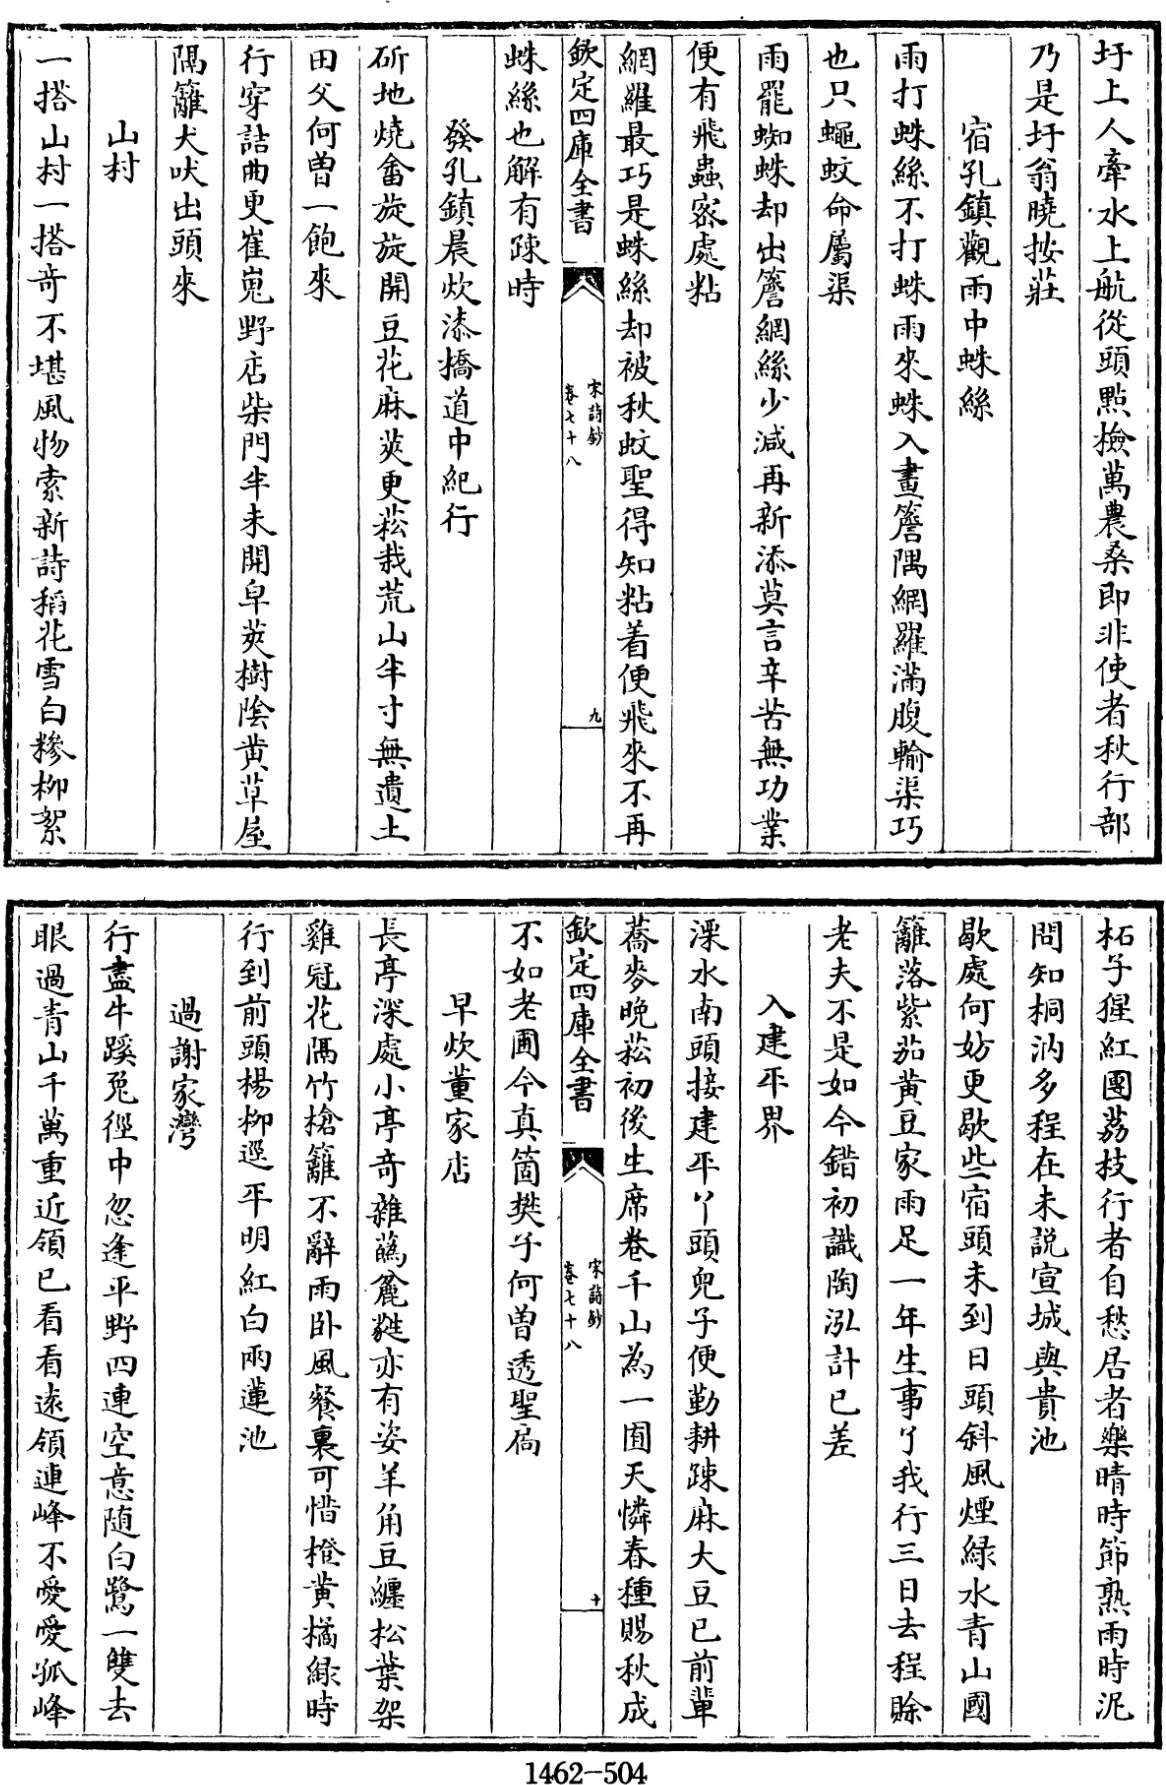 圩上人牽水上航從頭點檢萬農桑即非使者秋行部
乃是圩翁曉按莊
宿孔鎮觀雨中蛛絲
雨打蛛絲不打蛛雨來蛛入畫簷隅網羅滿腹輸渠巧
也只蠅蚊命屬渠
雨罷蜘蛛却出簷網絲少減再新添莫言辛苦無功業
便有飛蟲密處粘
網羅最巧是蛛絲却被秋蚊聖得知粘着便飛來不再
欽定四庫全書
宋詩鈔
卷七十八
九
蛛絲也解有疎時
發孔鎮晨炊漆橋道中紀行
斫地燒畬旋旋開豆花麻莢更菘栽荒山半寸無遺土
田父何曾一飽來
行穿詰曲更崔嵬野店柴門半未開皁莢樹陰黄草屋
隔籬犬吠出頭來
山村
一搭山村一搭奇不堪風物索新詩稻花雪白糝柳絮
柘子猩紅團荔枝行者自愁居者樂晴時節熟雨時泥
問知桐汭多程在未説宣城與貴池
歇處何妨更歇些宿頭未到日頭斜風煙緑水青山國
籬落紫茄黄豆家雨足一年生事了我行三日去程賒
老夫不是如今錯初識陶泓計已差
入建平界
溧水南頭接建平丫頭兒子便勤耕疎麻大豆已前輩
蕎麥晚菘初後生席卷千山為一囿天憐春種賜秋成
欽定四庫全書
宋詩鈔
卷七十八
十
不如老圃今真箇樊子何曾透聖扃
早炊董家店
長亭深處小亭奇雜蘤麄蘳亦有姿羊角豆纏松葉架
雞冠花隔竹槍籬不辭雨卧風餐裏可惜橙黄橘緑時
行到前頭楊柳逕平明紅白兩蓮池
過謝家灣
行盡牛蹊兎徑中忽逢平野四連空意隨白鷺一雙去
眼過青山千萬重近嶺已看看遠嶺連峰不愛愛孤峰
1462-504